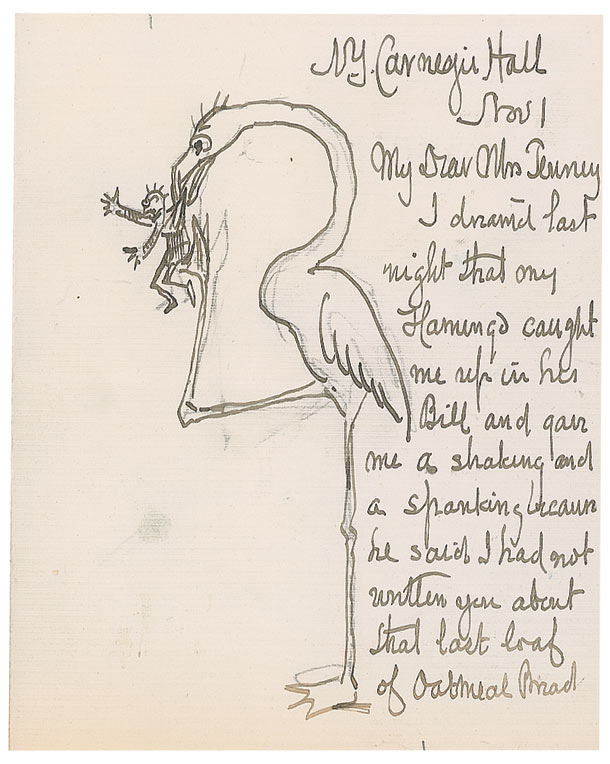 N.Y. Carnegie Hall
Nov 1
My Dear Mrs Tenney
I dream'd last
night that my
Flamingo caught
me up in his
Bill and gave
me a shaking and
a spanking because
he said I had not
written you about
that last loaf
of Oatmeal Bread